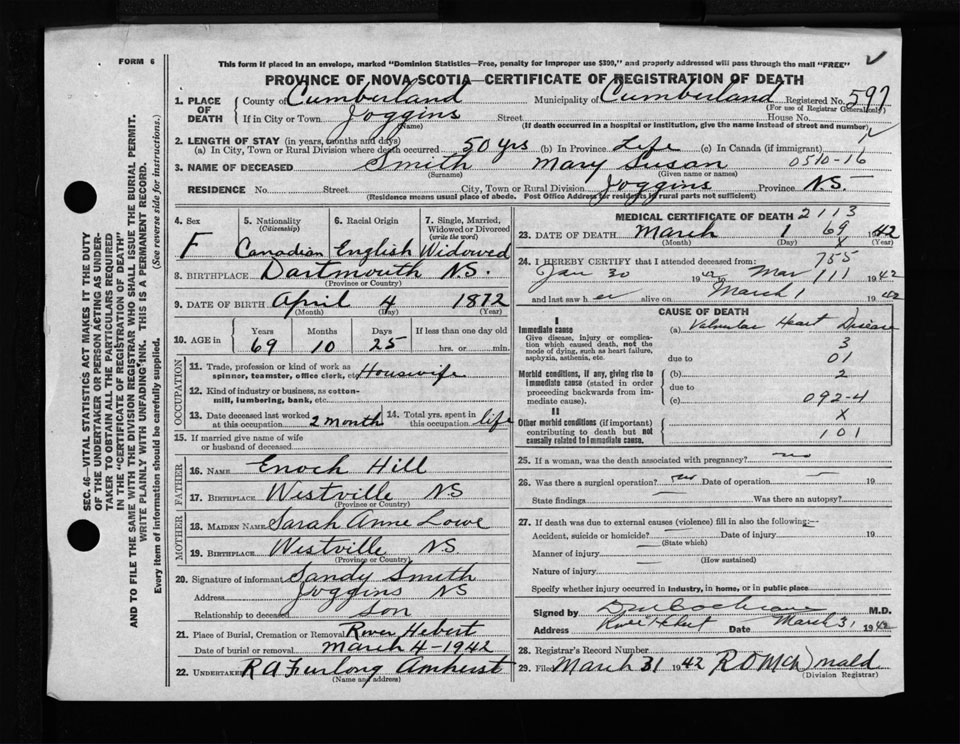 FORM 6
This form if placed in an envelope, marked "Dominion Statistics—Free, penalty for improper use $300," and properly addressed will pass through the mail "FREE"
PROVINCE OF NOVA SCOTIA—CERTIFICATE OF REGISTRATION OF DEATH
1. PLACE OF DEATH County of Cumberland Municipality of Cumberland Registered No. 597
(For use of Registrar General only)
If in City or Town Joggins Street House No.
(Name) (If death occurred in a hospital or institution, give the name instead of street and number)
2. LENGTH OF STAY (in years, months and days)
(a) In City, Town or Rural Division where death occurred 50 yrs (b) In Province Life (c) In Canada (if immigrant)
3. NAME OF DECEASED Smith Mary Susan 0510-16
(Surname) (Given name or names)
RESIDENCE No. Street City, Town or Rural Division Joggins Province N.S.
(Residence means usual place of abode. Post Office Address for residents by rural parts not sufficient)
4. Sex F
5. Nationality (Citizenship) Canadian
6. Racial Origin English
7. Single, Married, Widowed or Divorced (write the word) Widowed
8. BIRTHPLACE Dartmouth N.S.
(Province or Country)
9. DATE OF BIRTH April 4 1872
(Month) (Day) (Year)
10. AGE in Years 69 Months 10 Days 25 If less than one day old hrs. or min.
OCCUPATION
11. Trade, profession or kind of work as spinner, teamster, office clerk, etc. Houswife
12. Kind of industry or business, as cotton-mill, lumbering, bank, etc.
13. Date deceased last worked at this occupation 2 month 14. Total yrs. spent in this occupation life
15. If married give name of wife or husband of deceased
FATHER
16. NAME Enoch Hill
17. BIRTHPLACE Westville NS
(Province or Country)
MOTHER
18. MAIDEN NAME Sarah Anne Lowe
19. BIRTHPLACE Westville NS
(Province or Country)
20. Signature of informant Sandy Smith
Address Joggins NS
Relationship to deceased Son
21. Place of Burial, Cremation or Removal River Hebert
Date of burial or removal March 4-1942
22. UNDERTAKER R A Furlong Amherst
(Name and address)
MEDICAL CERTIFICATE OF DEATH 2113
23. DATE OF DEATH March 1 69 1942
(Month) (Day) X (Year)
24. I HEREBY CERTIFY that I attended deceased from: 755
Jan 30 1942 to Mar 1 11 1942
and last saw her alive on March 1 1942
CAUSE OF DEATH
I
Immediate cause (a) Valvular Heart Disease
Give disease, injury or complication which caused death, not the mode of dying, such as heart failure, asphyxia, asthenia, etc.
3
due to 01
Morbid conditions, if any, giving rise to immediate cause (stated in order proceeding backwards from immediate cause).
(b) 2
due to
(c) 092-4
II
X
Other morbid conditions (if important) contributing to death but not causally related to immediate cause. 101
25. If a woman, was the death associated with pregnancy? no
26. Was there a surgical operation? no Date of operation 19
State findings Was there an autopsy?
27. If death was due to external causes (violence) fill in also the following:—
Accident, suicide or homicide? Date of injury 19
(State which)
Manner of injury
(How sustained)
Nature of injury
Specify whether injury occurred in industry, in home, or in public place
Signed by Cochrane M.D.
Address River Hebert Date March 31 1942
28. Registrar's Record Number
29. Filed March 31 1942 R D McDonald
(Division Registrar)
SEC. 46—VITAL STATISTICS ACT MAKES IT THE DUTY
OF THE UNDERTAKER OR PERSON ACTING AS UNDER-
TAKER TO OBTAIN ALL THE PARTICULARS REQUIRED
IN THE "CERTIFICATE OF REGISTRATION OF DEATH"
AND TO FILE THE SAME WITH THE DIVISION REGISTRAR WHO SHALL ISSUE THE BURIAL PERMIT.
WRITE PLAINLY WITH UNFADING INK. THIS IS A PERMANENT RECORD.
Every item of information should be carefully supplied. (See reverse side for instructions.)